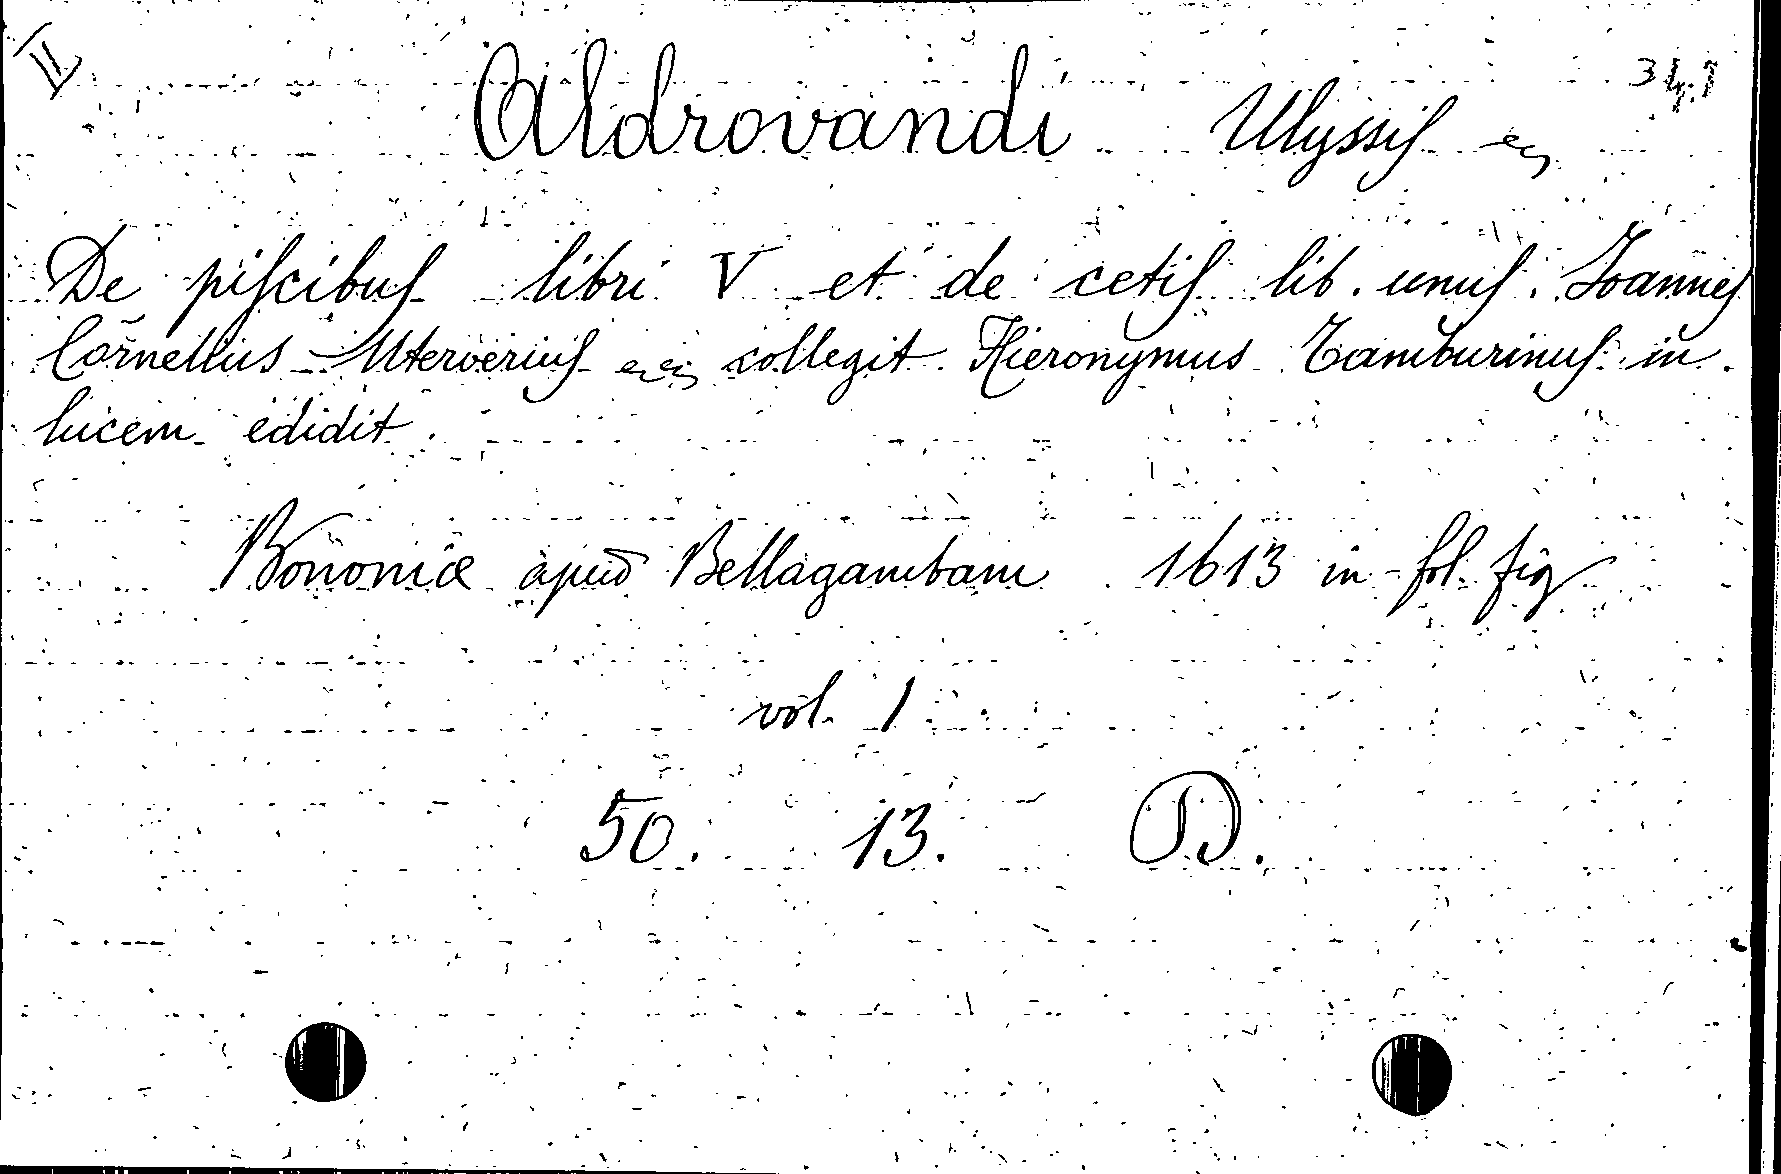 II
Aldrovandi Ulyssis
De piscibus libri V et de cetis lib. unus. Joannes
Cornelius Uterverius collegit Hieronymus Tamburinus in
lucem edidit.
Bononiæ apud Bellagambam 1613 in fol. fig
vol. 1
50. 13. D.